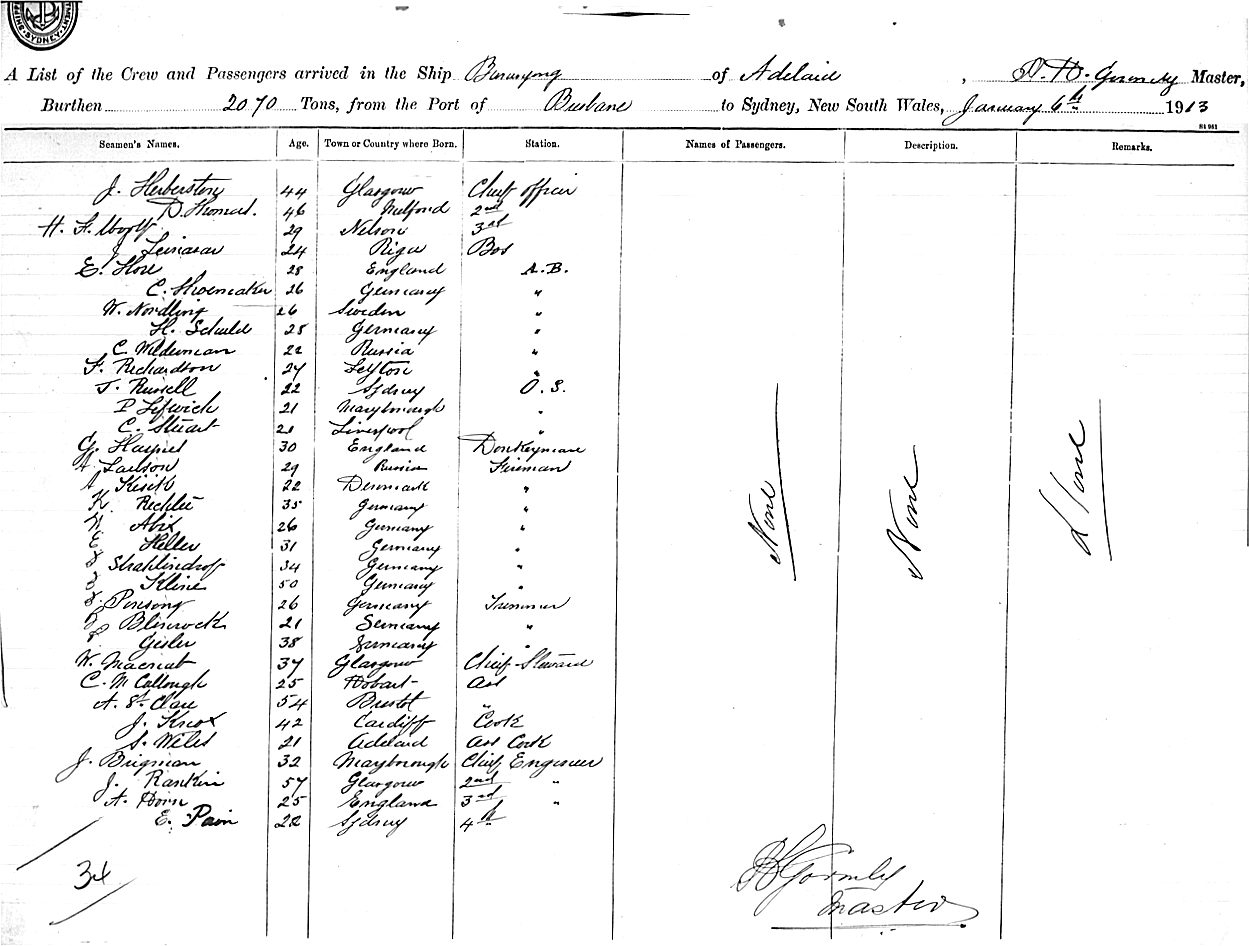 SHIPPING SYDNEY
A List of the Crew and Passengers arrived in the Ship Buninyong of Adelaid, Master,
Burthen 2070 Tons, from the Port of Brisbane to Sydney, New South Wales, January 6th 1913
81961
Seamen's Names. Age. Town or Country where Born. Station. Names of Passengers. Description. Remarks.
J. Herberston 44 Glasgow Chief Officer
D. Thomas. 46 Milford 2nd
H. F. Woolf 29 Nelson 3rd
J 24 Riga Bos
E. Hore 28 England A.B.
C. Shoemaker 26 Germany "
W. Nordling 26 Sweden "
H. Schuld 28 Germany "
C. Wilderman 22 Russia "
F. Richardson 27 Leyton "
T. Russell 22 Sydney O.S.
P Lefwich 21 Maryborough "
C. Stuart 21 Liverpool "
G. 30 England Donkeyman
A Larson 29 Russia Fireman
A Kisik 22 Denmark "
K. 35 Germany "
Abix 26 Germany "
Heller 31 Germany "
Strahlindrof 34 Germany "
Kline 50 Germany "
26 Germany Trimmer
21 Germany "
Gesler 38 Germany "
W. Macnab 37 Glasgow Chief Steward
C. McCullough 25 Hobart Ast
A. St. Clare 54 Bristol "
J. Knox 42 Cardiff Cook
S. Wiles 21 Adelaid Ast Cook
J. Brigman 32 Maryborough Chief Engineer
J. Rankin 57 Glasgow 2nd "
A. Dorn 25 England 3rd "
E. Pain 22 Sydney 4th
None None None
34
Gormley
Master